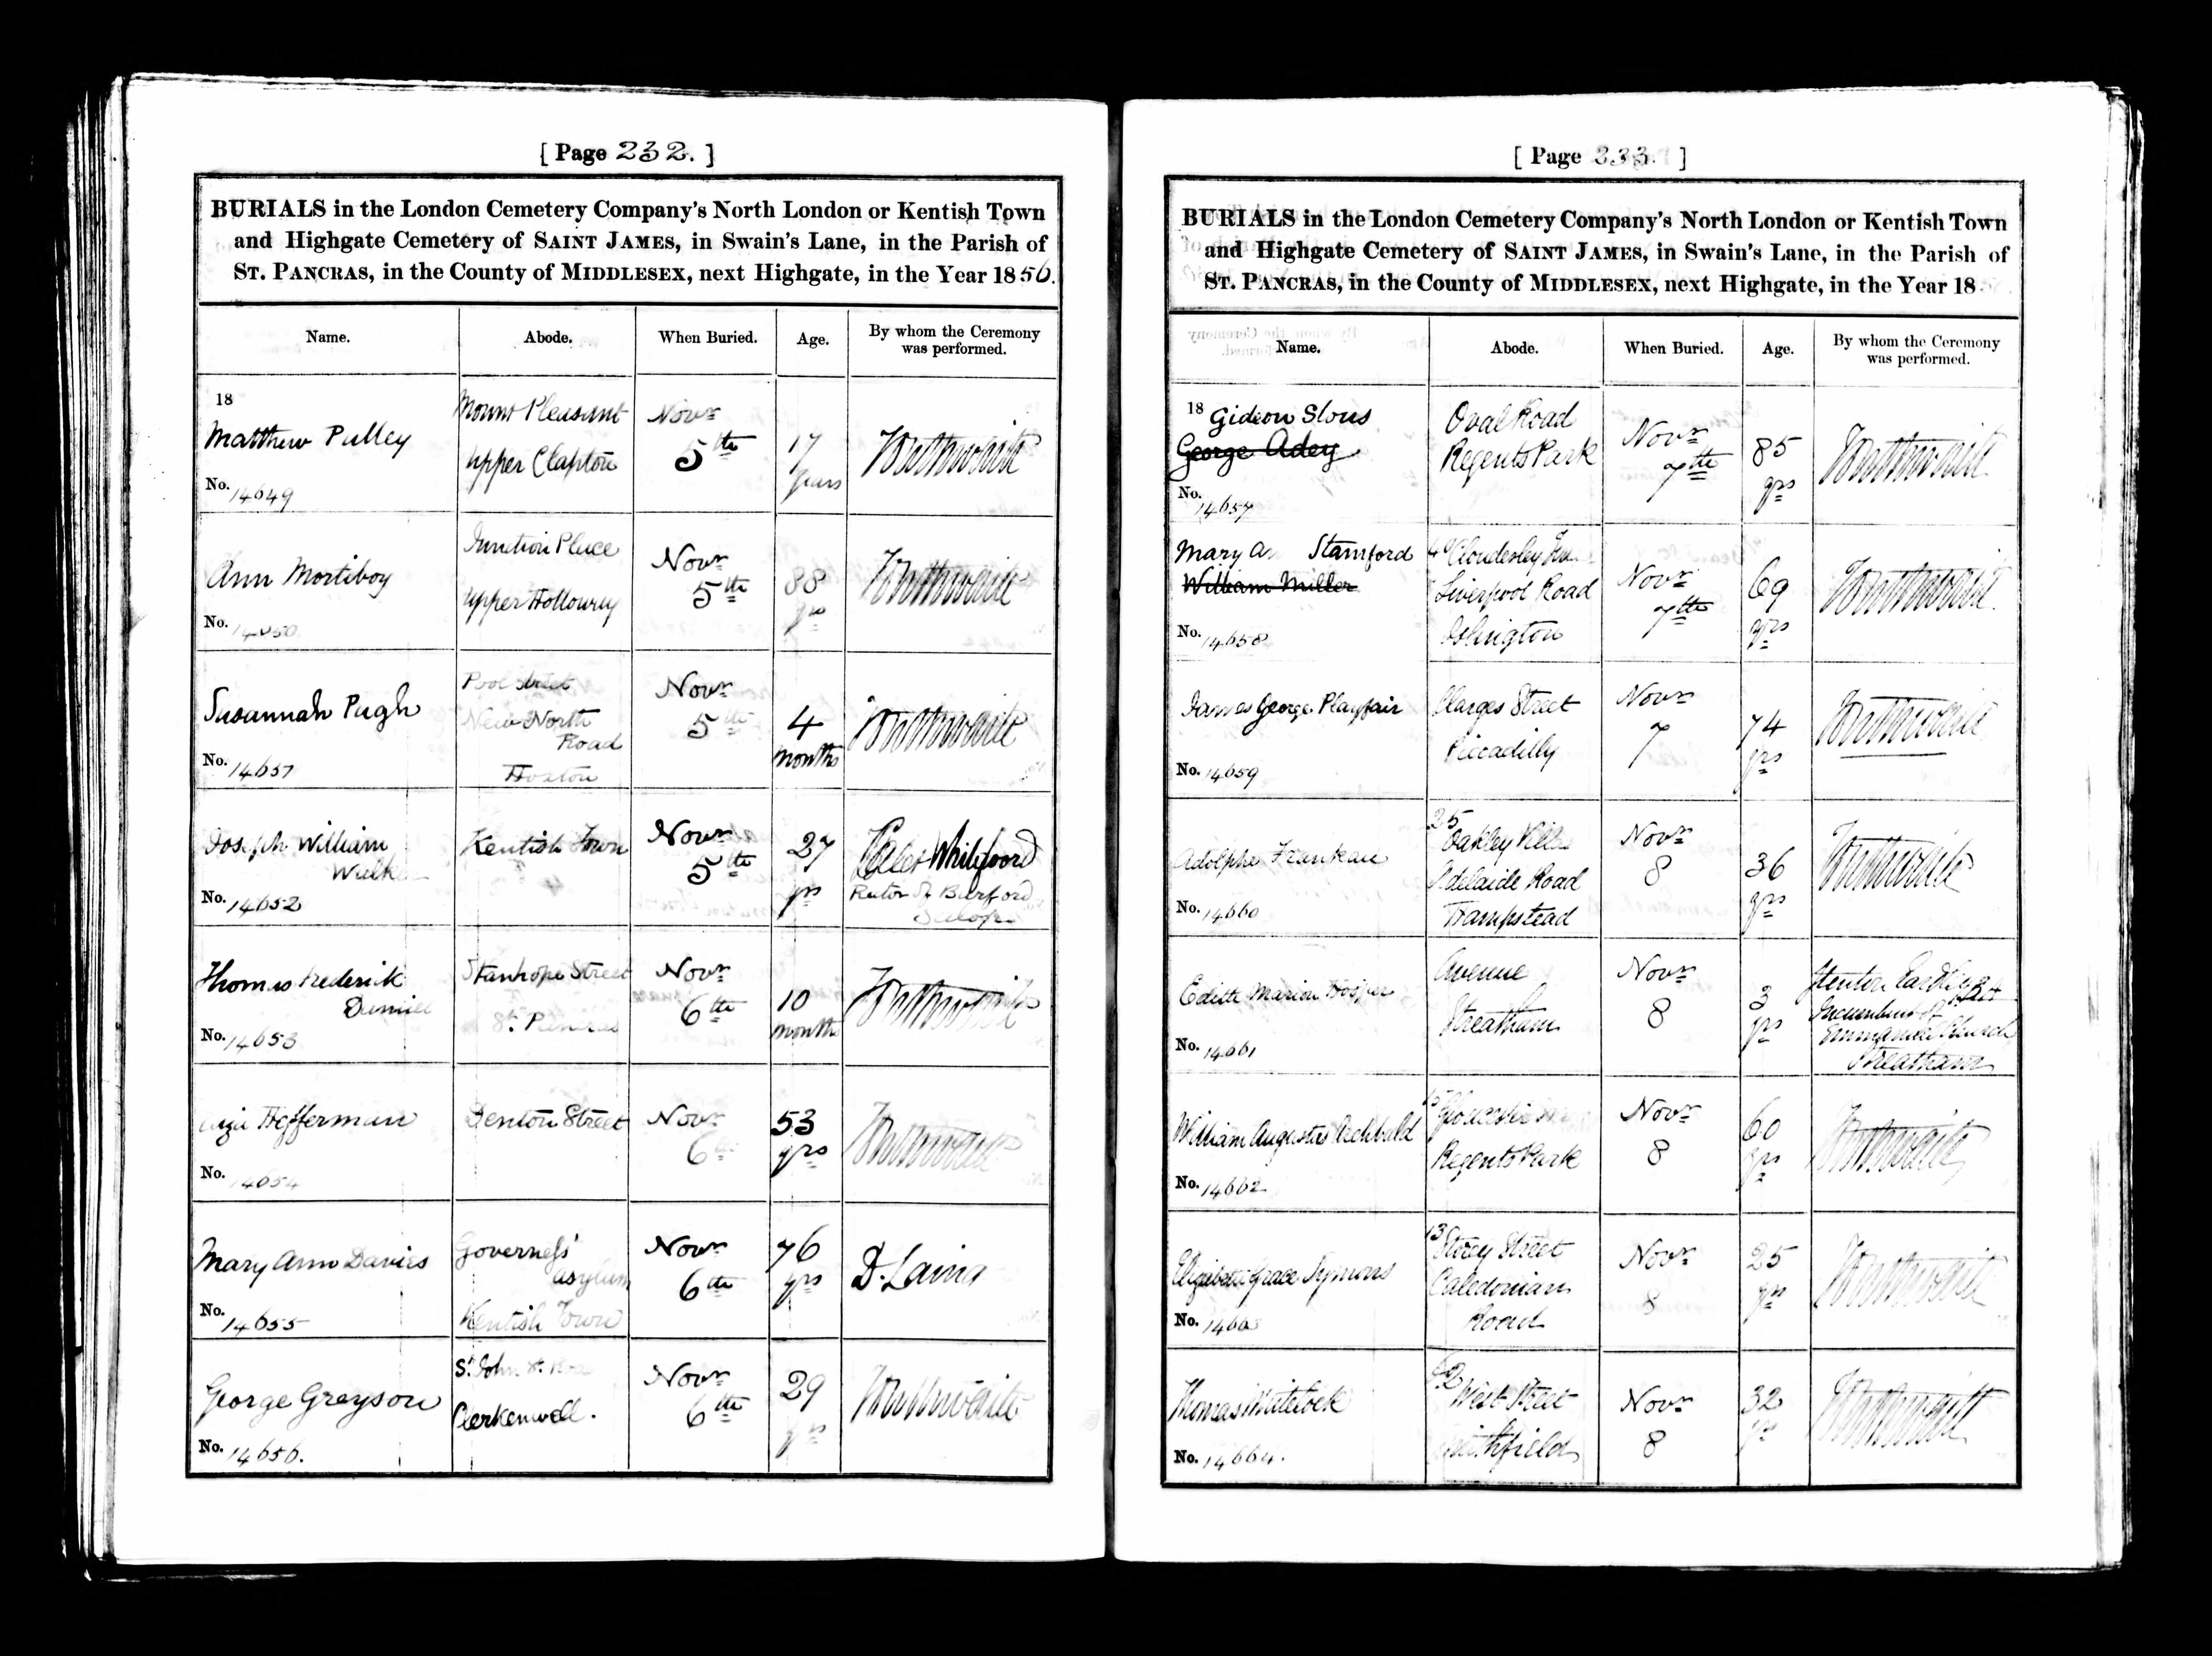 [ Page 232. ]
BURIALS in the London Cemetery Company's North London or Kentish Town
and Highgate Cemetery of SAINT JAMES, in Swain's Lane, in the Parish of
ST. PANCRAS, in the County of MIDDLESEX, next Highgate, in the Year 1856.
Name. Abode. When Buried. Age. By whom the Ceremony was performed.
18
Matthew Pulley
No. 14649
Mount Pleasant
Upper Clapton
Novr
5th
17
years
Ann Mortiboy
No. 14650
Junction Place
Upper Holloway
Novr
5th
88
yrs
Susannah Pugh
No. 14651
Pool Street
New North
Road
Hoxton
Novr
5th
4
months
Joseph William
No. 14652
Kentish Town
Novr
5th
27
yrs
Whitefoord
Rector of Burford
Salop
Thomas Frederick
No. 14653
Stanhope Street
St. Pancras
Novr
6th
10
month
Hefferman
No. 14654
Denton Street
Novr
6th
53
yrs
Mary Ann Davies
No. 14655
Governess'
Asylum
Kentish Town
Novr
6th
76
yrs
D. Laing
George Greyson
No. 14656.
St. John St. Road
Clerkenwell.
Novr
6th
29
yrs
[ Page 233. ]
BURIALS in the London Cemetery Company's North London or Kentish Town
and Highgate Cemetery of SAINT JAMES, in Swain's Lane, in the Parish of
ST. PANCRAS, in the County of MIDDLESEX, next Highgate, in the Year 18
Name. Abode. When Buried. Age. By whom the Ceremony was performed.
18 Gideon Slous
George Adey
No. 14657
Oval Road
Regents Park
Novr
7th
85
yrs
Mary Stamford
William Miller
No. 14658
Cloudesley
Liverpool Road
Islington
Novr
7th
69
yrs
James George Playfair
No. 14659
Clarges Street
Piccadilly
Novr
7
74
yrs
Adolphe Frankau
No. 14660
25
Oakley Villas
Adelaide Road
Hampstead
Novr
8
36
yrs
Edith Marion
No. 14661
Avenue
Streatham
Novr
8
3
yrs
Incumbent of
Emmanuel Church
Streatham
William Augustus Archbald
No. 14662
Gloucester
Regents Park
Novr
8
60
yrs
Elizabeth Grace Symons
No. 1466
13 Storey Street
Caledonian
Road
Novr
8
25
yrs
Thomas Whitelock
No. 14664.
West Street
Smithfield
Novr
8
32
yrs